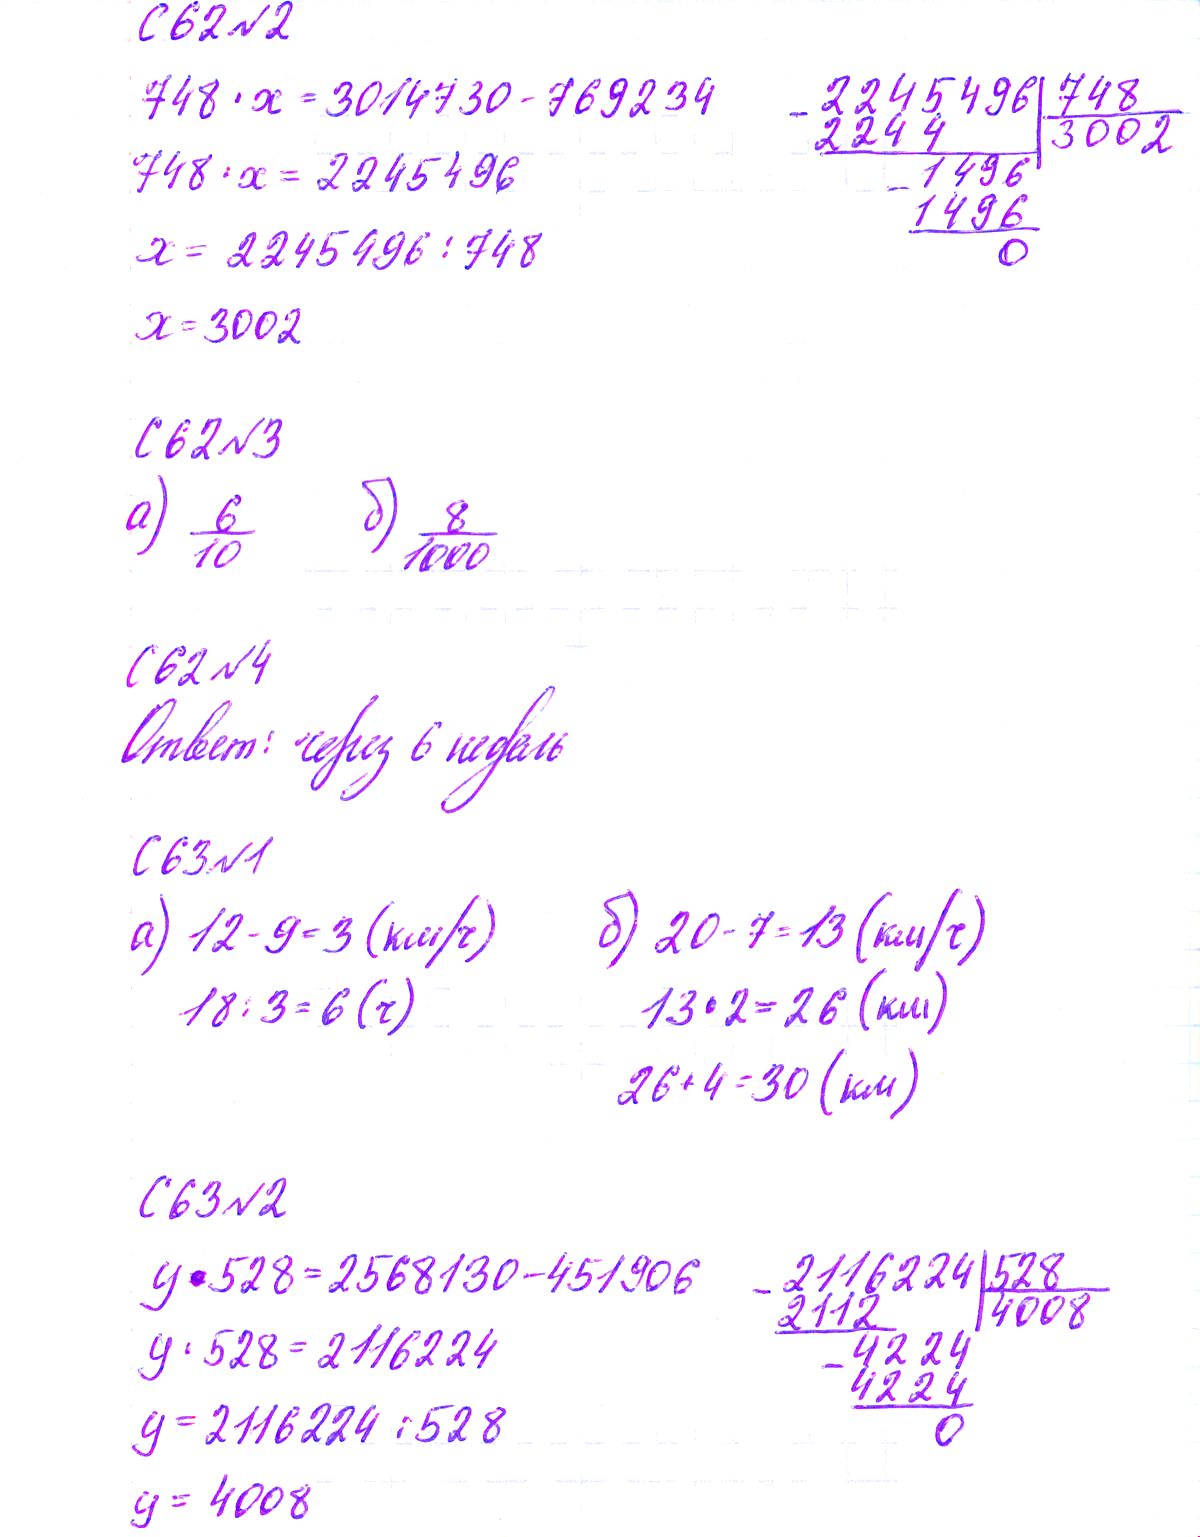 С 62 №2
748 · x = 3014730 - 769234
748 · x = 2245496
x = 2245496 : 748
x = 3002
- 2245496 | 748
2244 3002
- 1496
1496
0
С 62 №3
а) 6/10 б) 8/1000
С 62 №4
Ответ: через 6 недель
С 63 №1
а) 12 - 9 = 3 (км/ч)
18 : 3 = 6 (ч)
б) 20 - 7 = 13 (км/ч)
13 · 2 = 26 (км)
26 + 4 = 30 (км)
С 63 №2
y · 528 = 2568130 - 451906
y · 528 = 2116224
y = 2116224 : 528
y = 4008
- 2116224 | 528
2112 4008
- 4224
4224
0